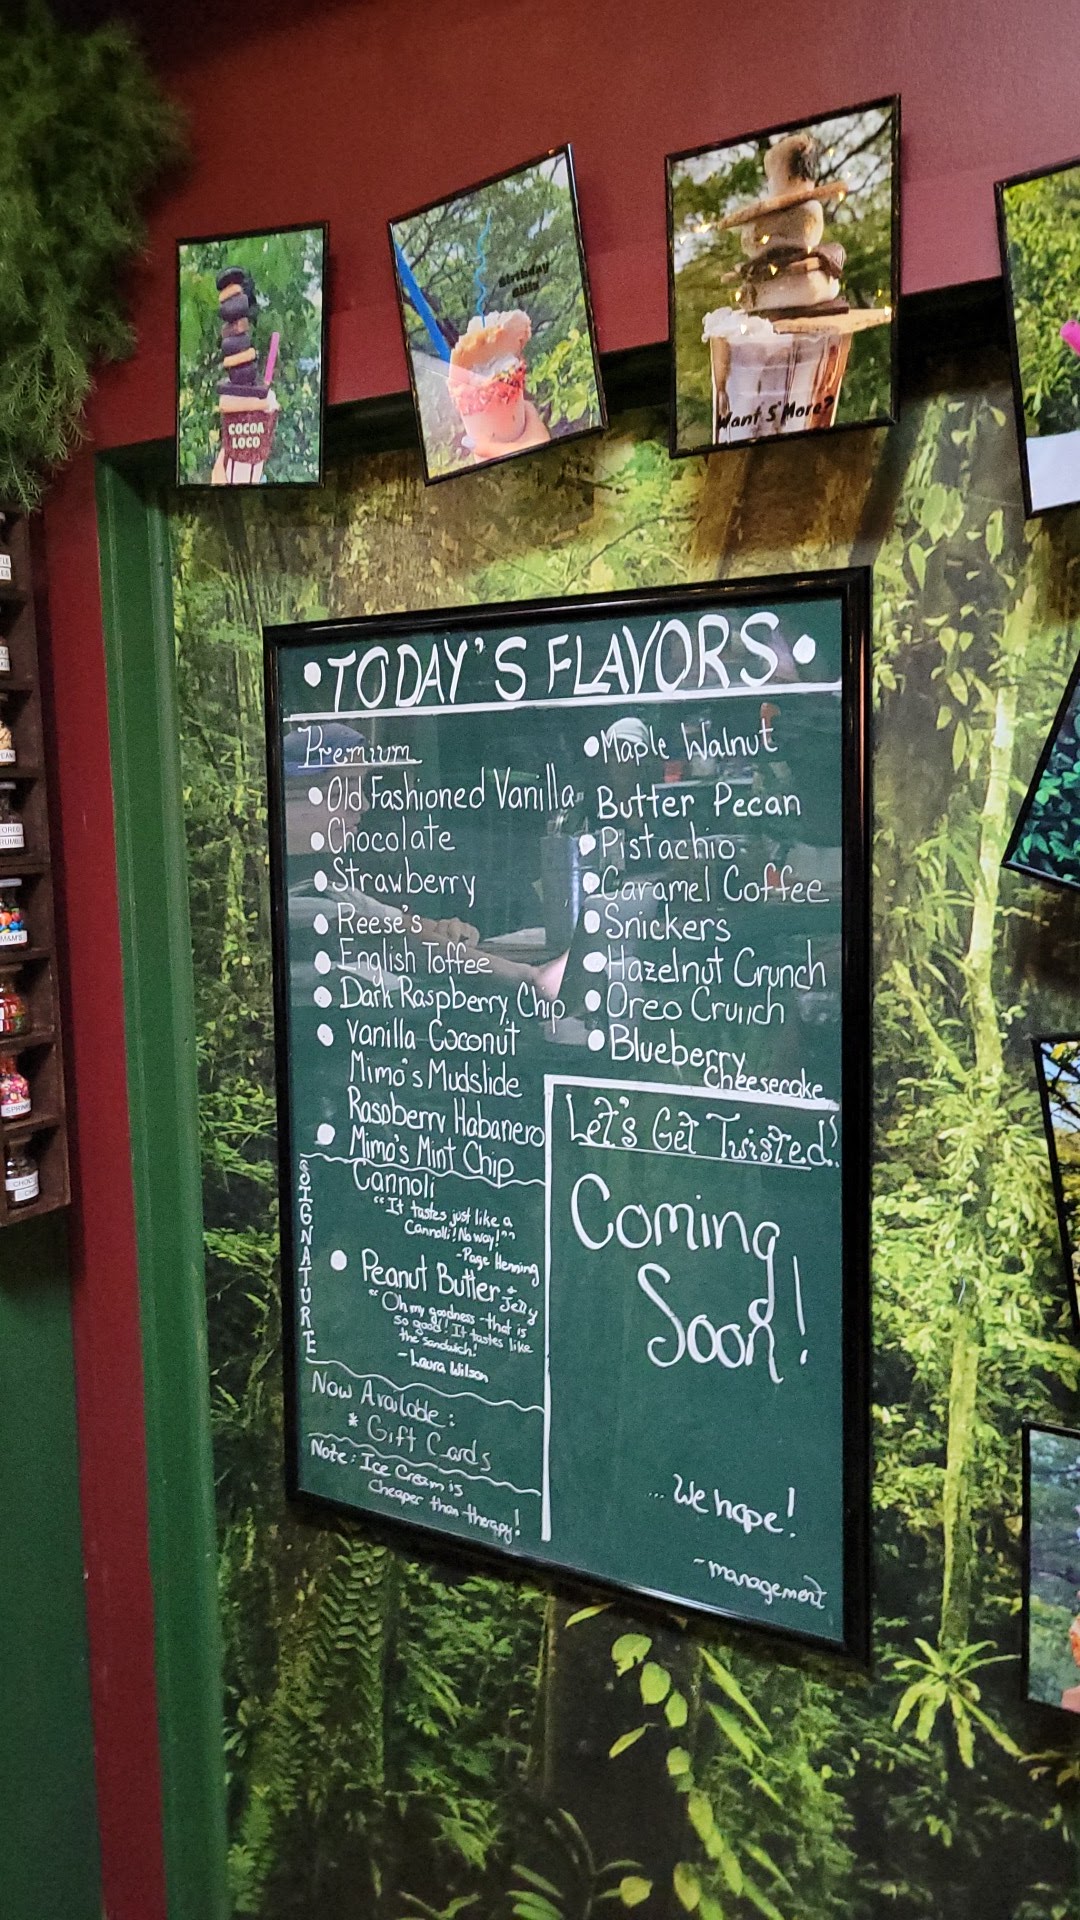 COCOA
LOCO
Birthday
Want S'More?
•TODAY'S FLAVORS•
Premium
•Old Fashioned Vanilla
•Chocolate
•Strawberry
•Reese's
•English Toffee
•Dark Raspberry Chip
•Vanilla Coconut
Mimo's Mudslide
Raspberry Habanero
•Mimo's Mint Chip
•Maple Walnut
Butter Pecan
•Pistachio
•Caramel Coffee
•Snickers
•Hazelnut Crunch
•Oreo Crunch
•Blueberry
Cheesecake
SIGNATURE
Cannoli
"It tastes just like a
Cannolli! No way!"
-Page Henning
•Peanut Butter +
Jelly
"Oh my goodness that is
so good! It tastes like
the sandwich!
-Laura Wilson
Now Available:
* Gift Cards
Note: Ice Cream is
Cheaper than therapy!
Let's Get Twisted!
Coming
Soon!
... We hope!
-management
M&M'S